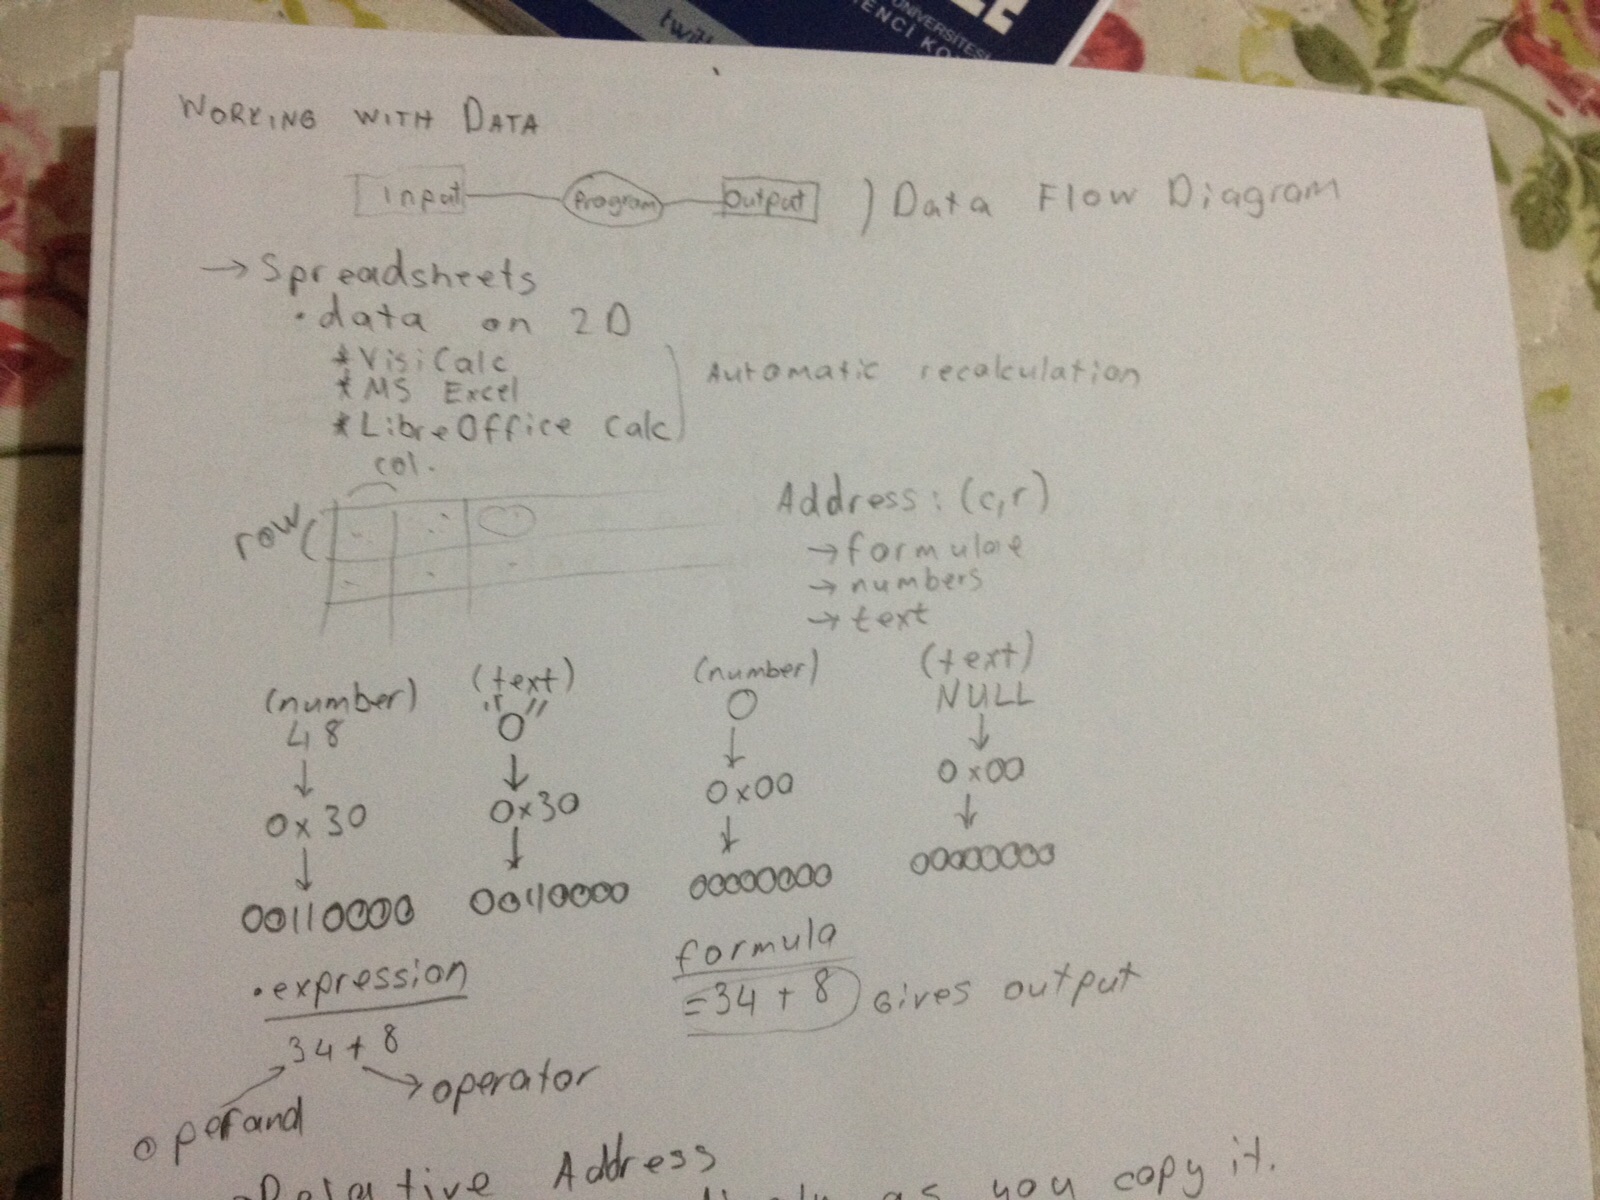 UNIVERSITESI
WORKING WITH DATA
Input Program Output ) Data Flow Diagram
→ Spreadsheets
• data on 2D
* VisiCalc
* MS Excel
* LibreOffice Calc
Automatic recalculation
col.
row
Address: (c,r)
→ formulae
→ numbers
→ text
(number) (text) (number) (text)
48 "0" 0 NULL
↓ ↓ ↓ ↓
0x30 0x30 0x00 0x00
↓ ↓ ↓ ↓
00110000 00110000 00000000 00000000
• expression formula
34 + 8 =34 + 8 Gives output
operand operator
Relative Address
as you copy it.